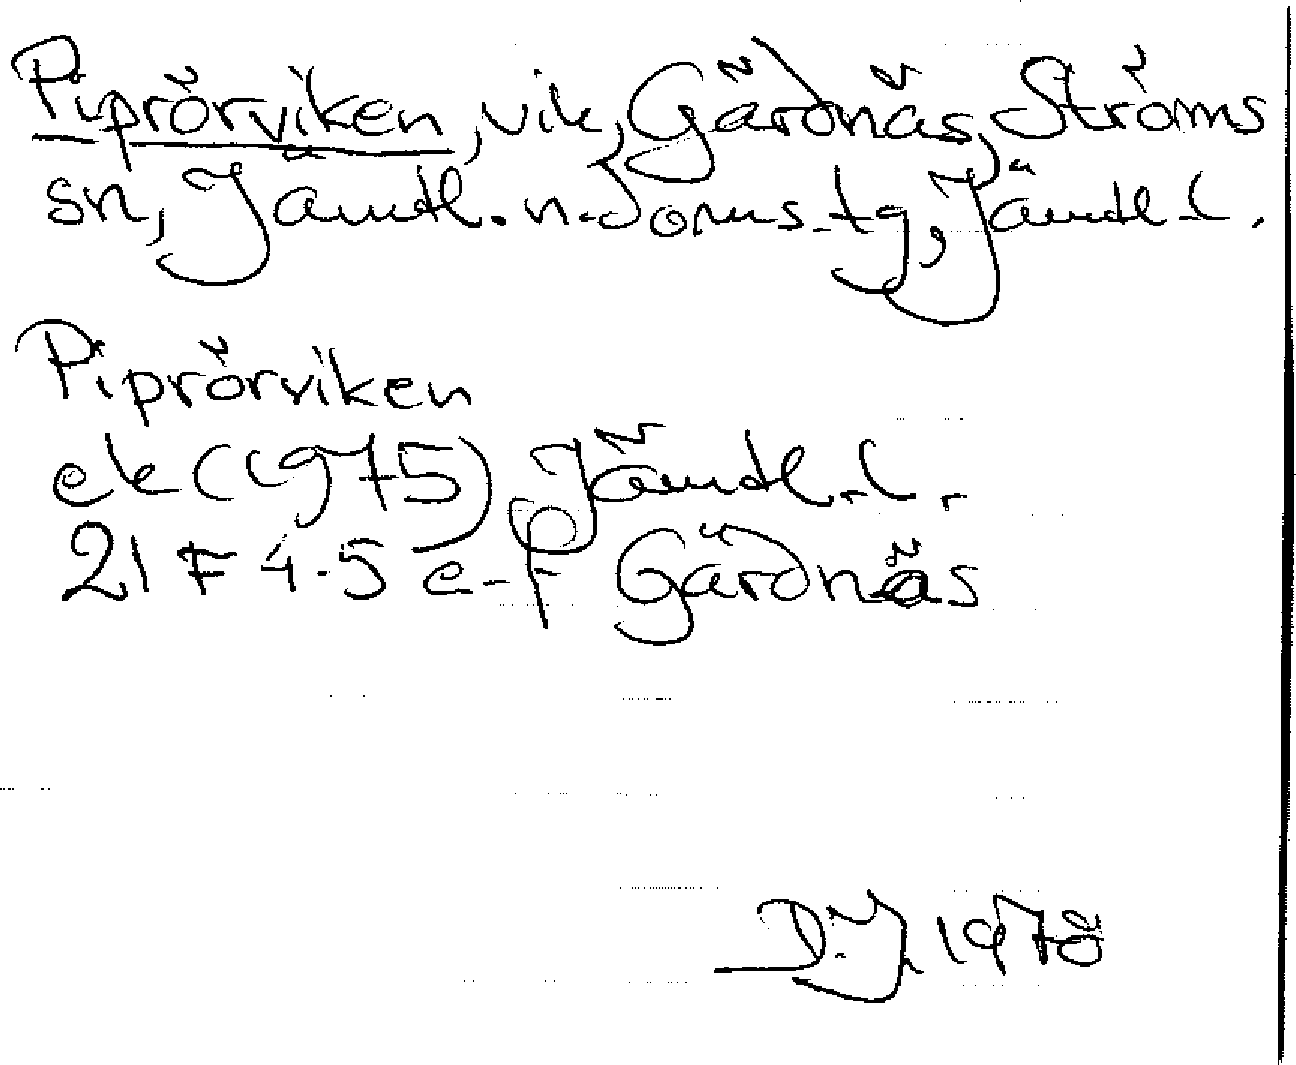 Piprörviken, vik, Gärdnäs, Ströms
sn, Jämtl. n. doms. tg, Jämtl. l.
Piprörviken
ek (1975) Jämtl. l.
21 F 4-5 e-f Gärdnäs
D.J. 1978